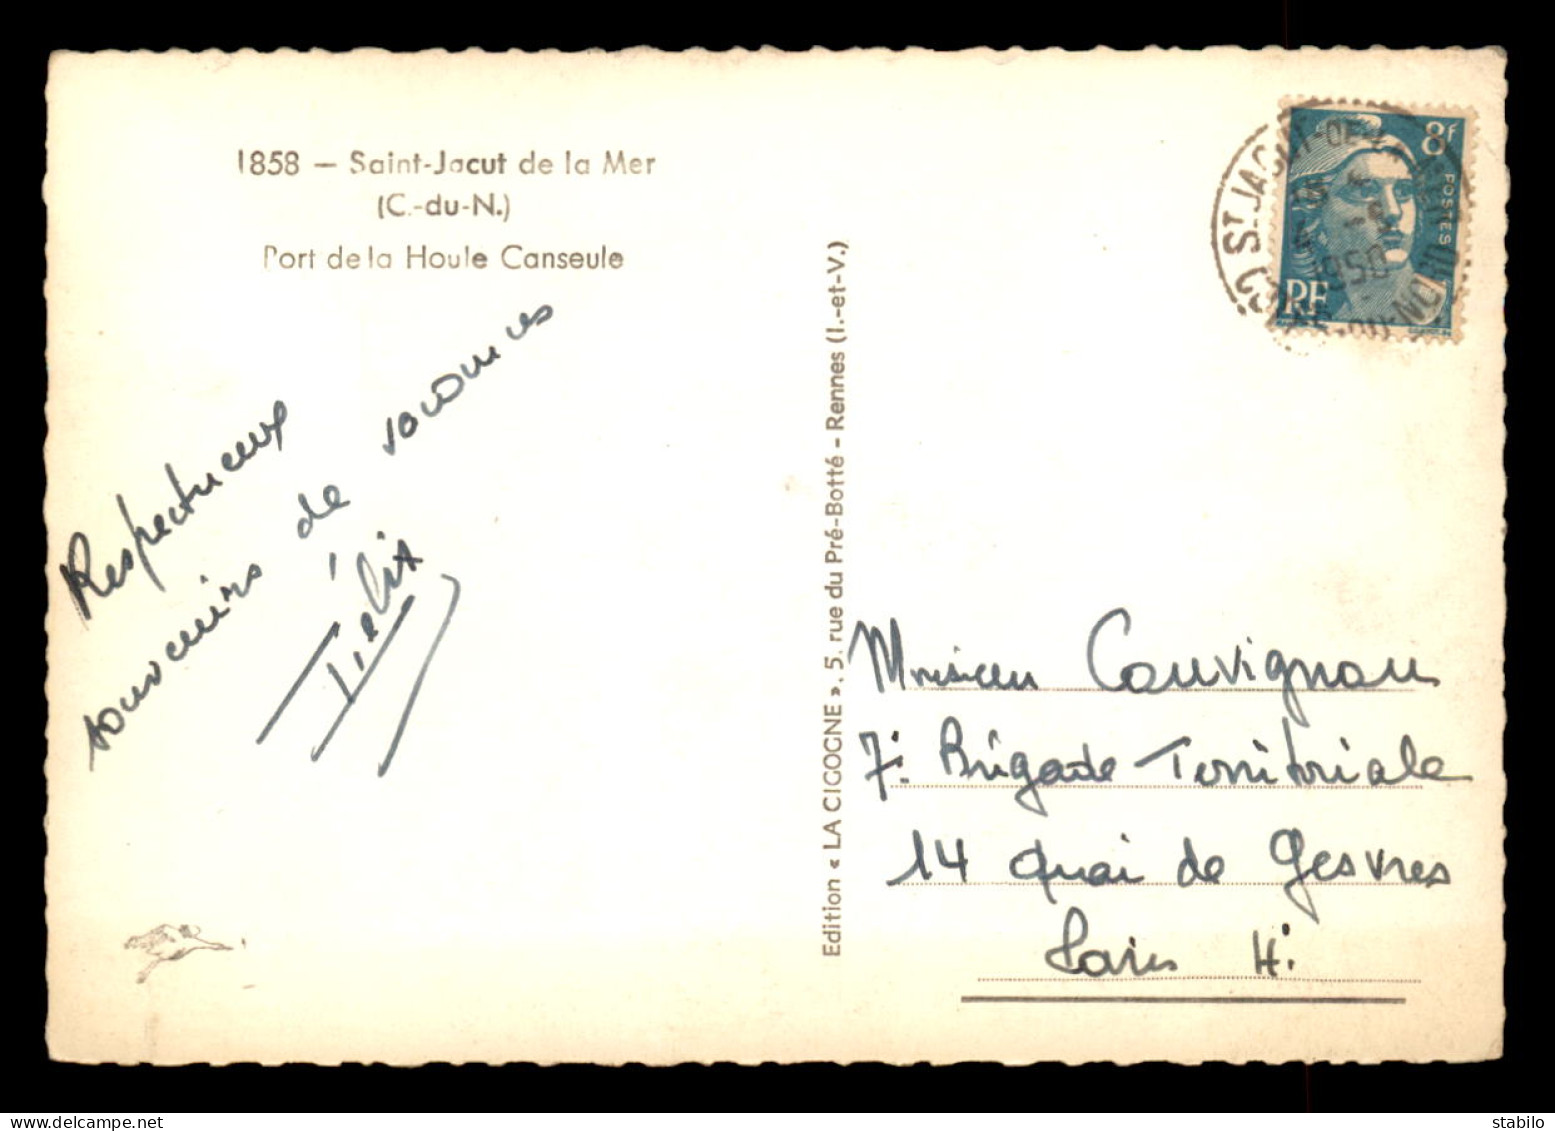 1858 — Saint-Jacut de la Mer
(C.-du-N.)
Port de la Houle Canseule
Respectueux
souvenirs de vacances
Edition « LA CIGOGNE », 5, rue du Pré-Botté - Rennes (I.-et-V.)
8f
POSTES
RF
ST JACUT-DE-
1950
DU-NORD
Monsieur Cauvignau
7e Brigade Territoriale
14 Quai de Gesvres
Paris 4e
stabilo